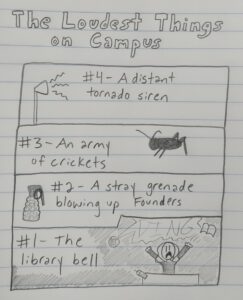 The Loudest Things
on Campus
#4 - A distant
tornado siren
#3 - An army
of crickets
#2 - A stray grenade
blowing up Founders
#1 - The
library bell